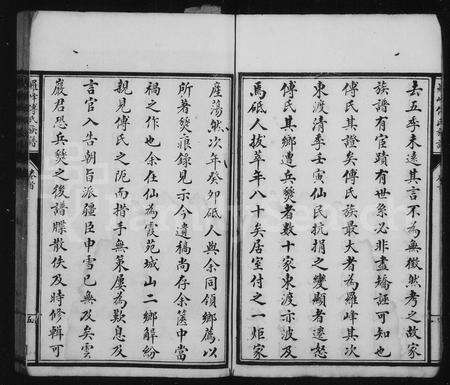 去五季未遠其言不為無徵然考之故家
族譜有宦蹟有世系必非盡矯誣可知也
傅氏其證矣傅氏族最大者為羅峰其次
東渡清季壬寅仙民抗捐之變顯者速怒
傅氏其鄉遭兵燹者數十家東渡亦波及
馬砥人拔萃年八十矣居室付之一炬家
產蕩然次年癸卯砥人與余同領鄉薦以
所著燹痕錄見示今遺稿尚存余篋中當
禍之作也余在仙為霞苑城山二鄉解紛
親見傅氏之阨而措手無策屢為歎息及
言官入告朝旨派疆臣申雪已無及矣雲
巖君恐兵燹之後譜牒散佚及時修輯可
羅峰傅氏族譜
卷首